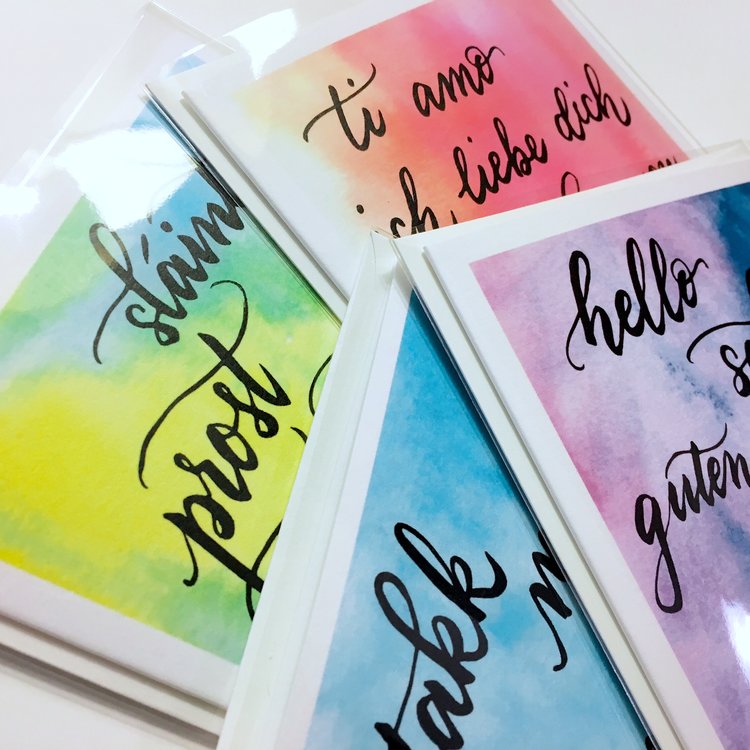 ti amo
ich liebe dich
sláin
prost
hello
guten
takk